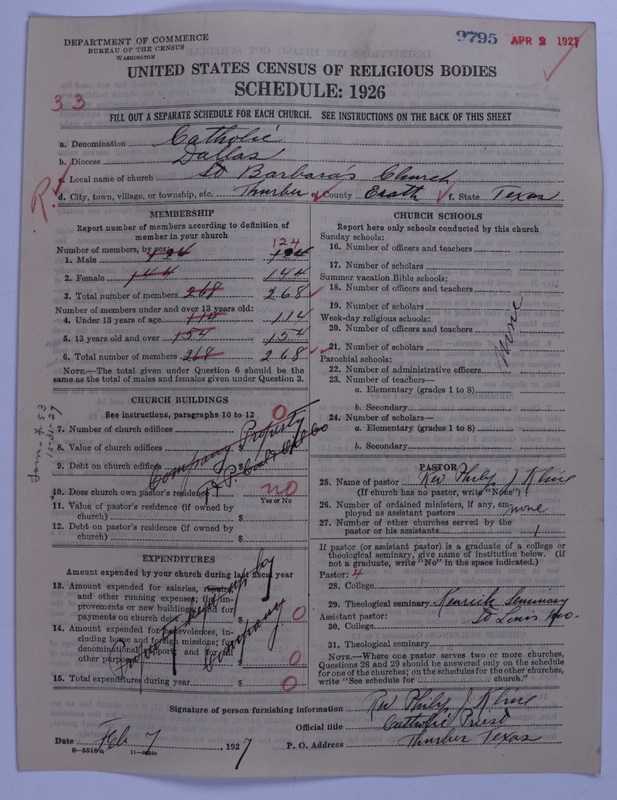 DEPARTMENT OF COMMERCE
BUREAU OF THE CENSUS
WASHINGTON
9795 APR 2 1927
UNITED STATES CENSUS OF RELIGIOUS BODIES
SCHEDULE: 1926
33
FILL OUT A SEPARATE SCHEDULE FOR EACH CHURCH. SEE INSTRUCTIONS ON THE BACK OF THIS SHEET
a. Denomination Catholic
b. Diocese Dallas
c. Local name of church St Barbara's Church
R
d. City, town, village, or township, etc. Thurber e. County Erath f. State Texas
MEMBERSHIP
Report number of members according to definition of
member in your church
Number of members, by sex: 124
1. Male 124
2. Female 144 144
3. Total number of members 268 268
Number of members under and over 13 years old:
4. Under 13 years of age 114 114
5. 13 years old and over 154 154
6. Total number of members 268 268
NOTE.—The total given under Question 6 should be the
same as the total of males and females given under Question 3.
CHURCH BUILDINGS
See instructions, paragraphs 10 to 12 0
7. Number of church edifices
8. Value of church edifices $
9. Debt on church edifices $
Company Property
T. P. Coal & Oil Co
10. Does church own pastor's residence? no
Yes or No
11. Value of pastor's residence (if owned by
church) $
12. Debt on pastor's residence (if owned by
church) $
EXPENDITURES
Amount expended by your church during last fiscal year
13. Amount expended for salaries, repairs,
and other running expenses; for im-
provements or new buildings; and for
payments on church debt $ 0
14. Amount expended for benevolences, in-
cluding home and foreign missions; for
denominational support; and for all
other purposes $ 0
15. Total expenditures during year $ 0
by
Company
CHURCH SCHOOLS
Report here only schools conducted by this church
Sunday schools:
16. Number of officers and teachers
17. Number of scholars
Summer vacation Bible schools:
18. Number of officers and teachers
19. Number of scholars
Week-day religious schools:
20. Number of officers and teachers
21. Number of scholars
Parochial schools:
22. Number of administrative officers
23. Number of teachers—
a. Elementary (grades 1 to 8)
b. Secondary
24. Number of scholars—
a. Elementary (grades 1 to 8)
b. Secondary
None
PASTOR
25. Name of pastor Rev Philip J Kline
(If church has no pastor, write "None")
26. Number of ordained ministers, if any, em-
ployed as assistant pastors none
27. Number of other churches served by the
pastor or his assistants 1
If pastor (or assistant pastor) is a graduate of a college or
theological seminary, give name of institution below. (If
not a graduate, write "No" in the space indicated.)
Pastor: 4
28. College
29. Theological seminary Kenrick Seminary
Assistant pastor: St Louis Mo.
30. College
31. Theological seminary
NOTE.—Where one pastor serves two or more churches,
Questions 28 and 29 should be answered only on the schedule
for one of the churches; on the schedules for the other churches,
write "See schedule for church."
Signature of person furnishing information Rev Philip J Kline
Official title Catholic Priest
Date Feb 7, 1927 P. O. Address Thurber Texas
8-5518a